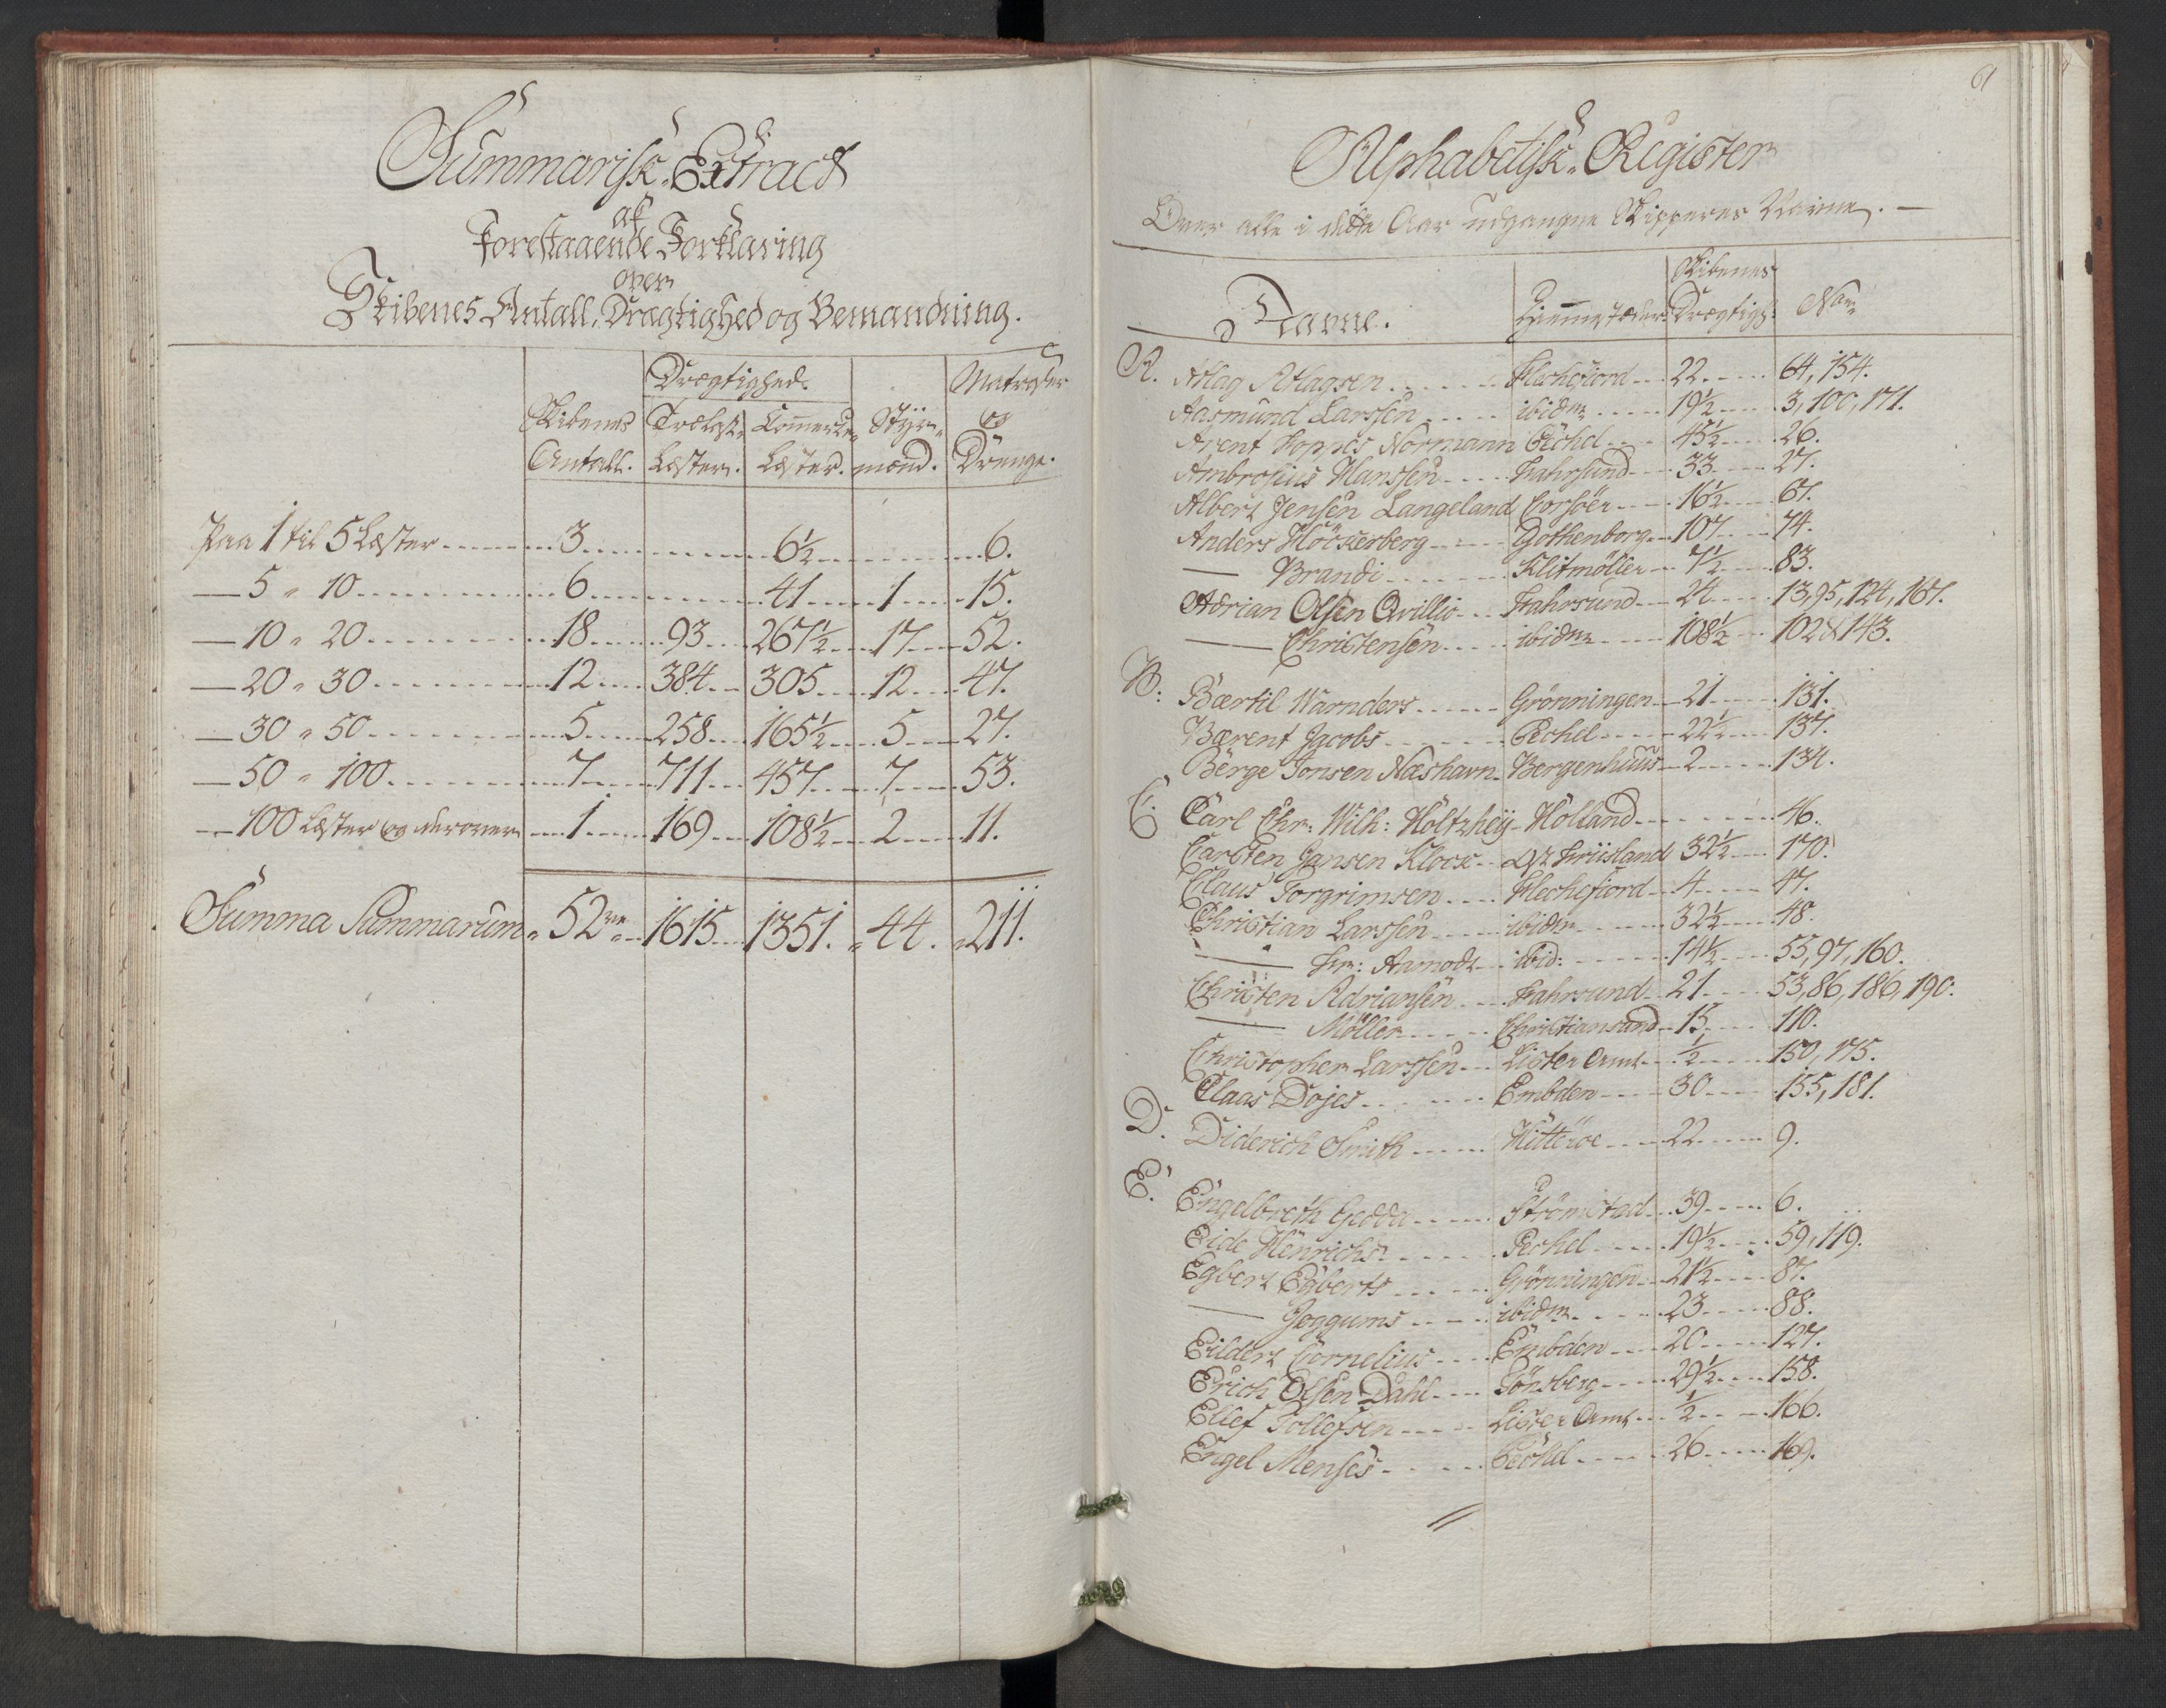 Summarisk Extract
af
Forestaaende Forklaring
over
Skibenes Antall, Drægtighed og Bemandning.
Skibenes Antall. Drægtighed. Trælast Læster. Commerce Læster. Styrmænd. Matroser og Drenge.
Paa 1 til 5 Læster 3 6½ 6.
— 5 " 10 6 41 1 15.
— 10 " 20 18 93 267½ 17 52.
— 20 " 30 12 384 305 12 47.
— 30 " 50 5 258 165½ 5 27.
— 50 " 100 7 711 457 7 53.
— 100 Læster og derover 1 169 108½ 2 11.
Summa Summarum 52 1615 1351. 44. 211.
61
Alphabetisk Register
Over alle i dette Aar udgangne Skipperes Navne. —
Navne. Hiemstæder. Skibenes Drægtigh: No
A. Atlag Atlagsen Flechefiord 22 64, 154.
Aasmund Larssen ibidm 19½ 3, 100, 171.
Arent Hoppes Normann Pechel 45½ 26.
Ambrosius Hanssen Fahrsund 33 27.
Albert Jensen Langeland Corsöer 16½ 67.
Anders Höckerberg Gothenborg 107 74.
— Brandi Klitmöller 7½ 83.
Adrian Olsen Qvillio Fahrsund 24 13, 95, 124, 167.
— Christensen ibidm 108½ 102 & 143.
B: Bærtil Warnders Grönningen 21 131.
Bærent Jacobs Pechel 22½ 137.
Börge Jonsen Næshavn Bergenhuus 2 134.
C. Carl Chr: Wilh: Holtzhey Holland 46.
Carsten Jansen Klock Ost Friisland 32½ 170.
Claus Torgrimsen Flechefiord 4 47.
Christian Larssen ibidm 32½ 48.
— Fr: Aamodt ibid: 14½ 55, 97, 160.
Christen Adriansen Fahrsund 21 53, 86, 186, 190.
— Möller Christiansand 15 110.
Christopher Larssen Lister Amt ½ 150, 175.
Claas Dojes Embden 30 155, 181.
D. Diderich Smith Hitteröe 22 9.
E. Engelbreth Gedda Strömstad 39 6.
Eide Henrichs Pechel 19½ 59, 119.
Egbert Egberts Grönningen 21½ 87.
— Joggums ibidm 23 88.
Eildert Cornelius Embden 20 127.
Erich Olsen Dahl Tönsberg 29½ 158.
Ellef Tollefsen Lister Amt ½ 166.
Engel Menses Pechel 26 169.